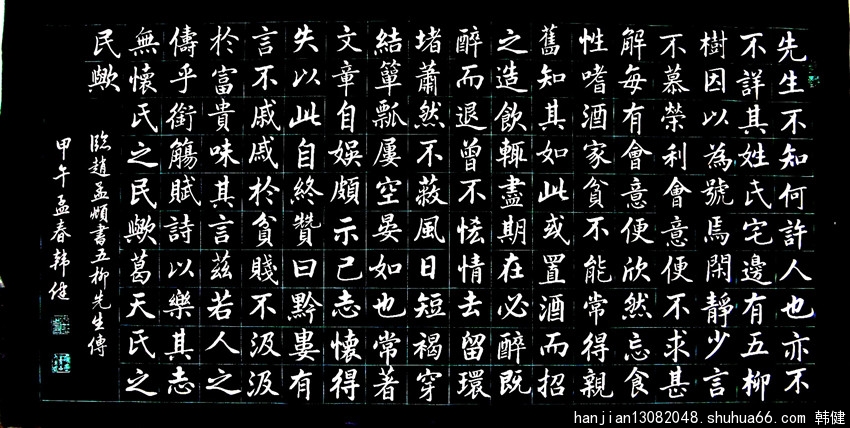 先生不知何許人也亦不
不詳其姓氏宅邊有五柳
樹因以為號焉閑靜少言
不慕榮利會意便不求甚
解每有會意便欣然忘食
性嗜酒家貧不能常得親
舊知其如此或置酒而招
之造飲輒盡期在必醉既
醉而退曾不恡情去留環
堵蕭然不蔽風日短褐穿
結簞瓢屢空晏如也常著
文章自娛頗示己志懷得
失以此自終贊曰黔婁有
言不戚戚於貧賤不汲汲
於富貴味其言茲若人之
儔乎銜觴賦詩以樂其志
無懷氏之民歟葛天氏之
民歟
臨趙孟頫書五柳先生傳
甲午孟春韓健
hanjian13082048.shuhua66.com 韩健